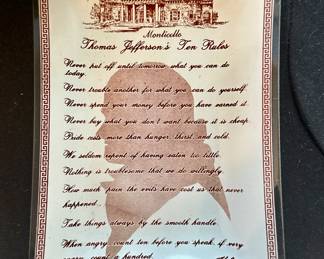 Monticello
Thomas Jefferson's Ten Rules
Never put off until tomorrow what you can do
today.
Never trouble another for what you can do yourself.
Never spend your money before you have earned it.
Never buy what you don't want because it is cheap.
Pride costs more than hunger, thirst, and cold.
We seldom repent of having eaten too little.
Nothing is troublesome that we do willingly.
How much pain the evils have cost us that never
happened.
Take things always by the smooth handle.
When angry, count ten before you speak, if very
angry, count a hundred.